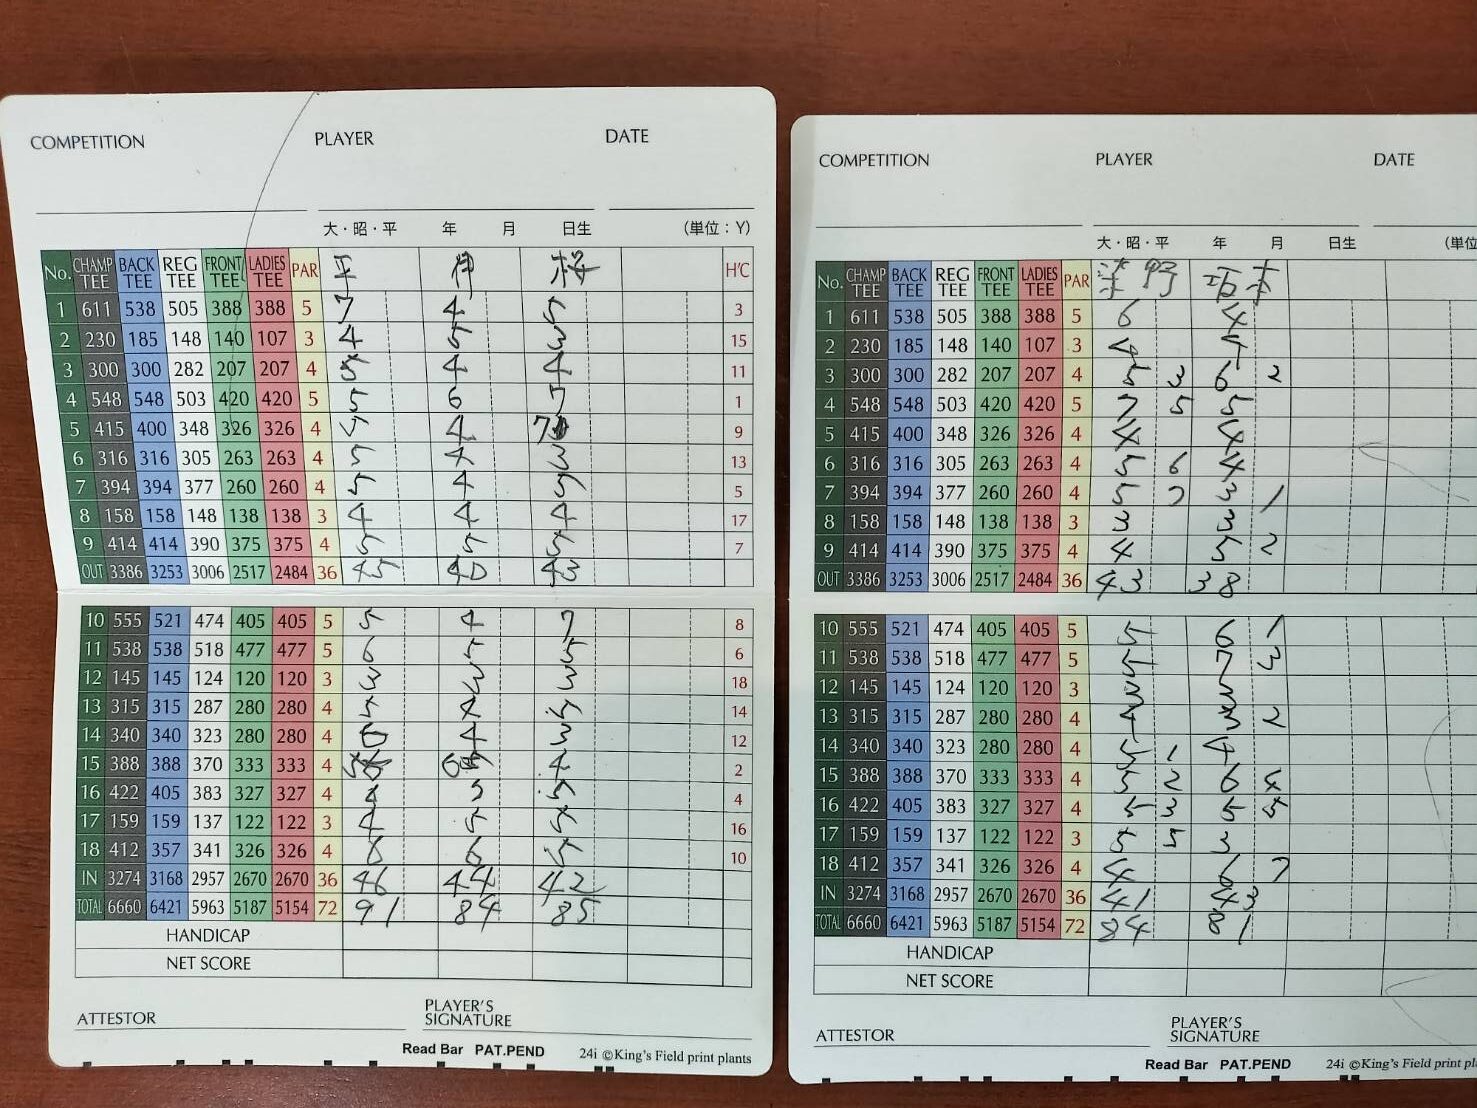 COMPETITION PLAYER DATE
大・昭・平 年 月 日生 (単位：Y)
No. CHAMP TEE BACK TEE REG TEE FRONT TEE LADIES TEE PAR H'C
1 611 538 505 388 388 5 7 4 5 3
2 230 185 148 140 107 3 4 5 3 15
3 300 300 282 207 207 4 5 4 4 11
4 548 548 503 420 420 5 5 6 1
5 415 400 348 326 326 4 5 4 9
6 316 316 305 263 263 4 5 4 3 13
7 394 394 377 260 260 4 5 4 5
8 158 158 148 138 138 3 4 4 4 17
9 414 414 390 375 375 4 5 5 5 7
OUT 3386 3253 3006 2517 2484 36 45 40 43
10 555 521 474 405 405 5 5 4 7 8
11 538 538 518 477 477 5 6 5 5 6
12 145 145 124 120 120 3 3 3 3 18
13 315 315 287 280 280 4 4 14
14 340 340 323 280 280 4 4 3 12
15 388 388 370 333 333 4 4 2
16 422 405 383 327 327 4 3 4
17 159 159 137 122 122 3 4 5 16
18 412 357 341 326 326 4 6 5 10
IN 3274 3168 2957 2670 2670 36 46 44 42
TOTAL 6660 6421 5963 5187 5154 72 91 84 85
HANDICAP
NET SCORE
ATTESTOR PLAYER'S SIGNATURE
Read Bar PAT.PEND 24i ©King's Field print plants
COMPETITION PLAYER DATE
大・昭・平 年 月 日生 (単位
No. CHAMP TEE BACK TEE REG TEE FRONT TEE LADIES TEE PAR
1 611 538 505 388 388 5 6 4
2 230 185 148 140 107 3 4 4
3 300 300 282 207 207 4 5 3 6 2
4 548 548 503 420 420 5 7 5 5
5 415 400 348 326 326 4 4 4
6 316 316 305 263 263 4 5 6 4
7 394 394 377 260 260 4 5 7 3 1
8 158 158 148 138 138 3 3 3
9 414 414 390 375 375 4 4 5 2
OUT 3386 3253 3006 2517 2484 36 43 38
10 555 521 474 405 405 5 5 6 1
11 538 538 518 477 477 5 5 7 3
12 145 145 124 120 120 3 3 3
13 315 315 287 280 280 4 4 3 2
14 340 340 323 280 280 4 5 1 4
15 388 388 370 333 333 4 5 2 6 4
16 422 405 383 327 327 4 5 3 5 5
17 159 159 137 122 122 3 5 5 3
18 412 357 341 326 326 4 4 6 7
IN 3274 3168 2957 2670 2670 36 41 43
TOTAL 6660 6421 5963 5187 5154 72 84 81
HANDICAP
NET SCORE
ATTESTOR PLAYER'S SIGNATURE
Read Bar PAT.PEND 24i ©King's Field print